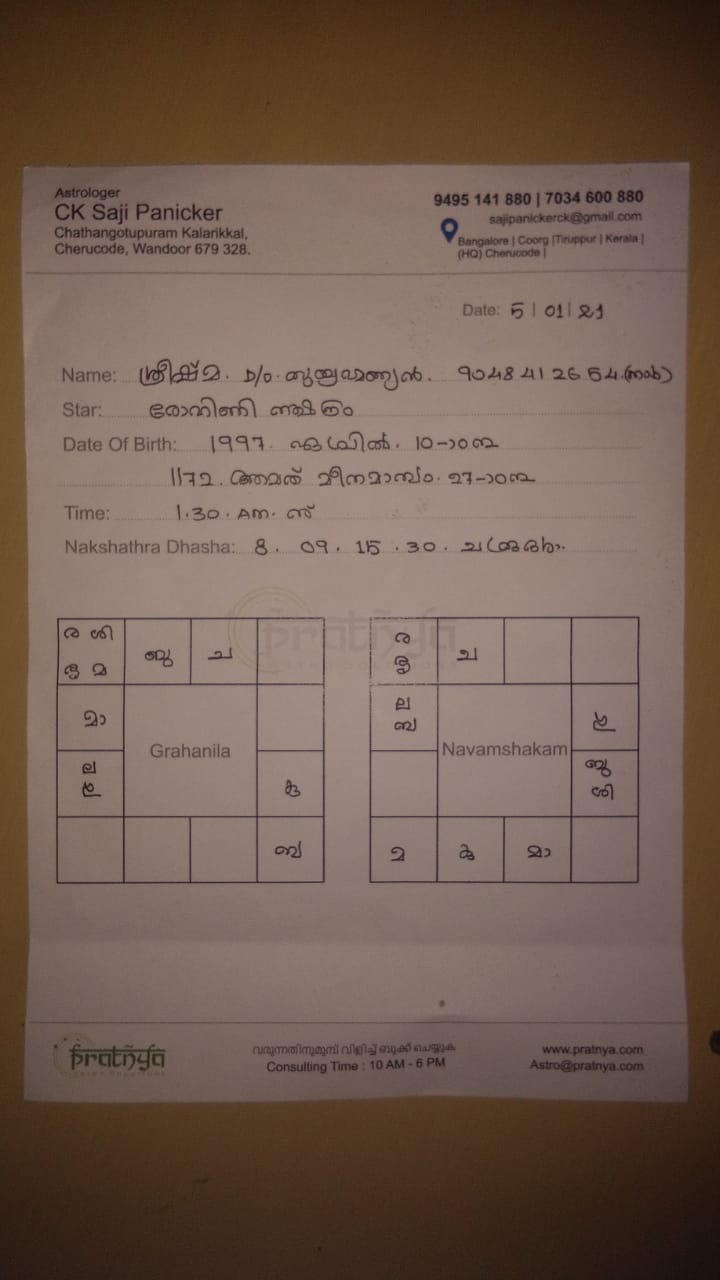 Astrologer
CK Saji Panicker
Chathangotupuram Kalarikkal,
Cherucode, Wandoor 679 328.
9495 141 880 | 7034 600 880
sajipanickerck@gmail.com
Bangalore | Coorg |Tiruppur | Kerala |
(HQ) Cherucode |
Date: 5 | 01 | 21
Name: ശ്രീഷ്മ. D/o. സുബ്രഹ്മണ്യൻ. 9048412654.
Star: രോഹിണി നക്ഷത്രം
Date Of Birth: 1997. ഏപ്രിൽ. 10-ാംനു
1172. മീനമാസം. 27-ാംനു
Time: 1.30. Am. ന്
Nakshathra Dhasha: 8. 09. 15. 30.
pratnya
ര ശി
ശു മ
ബു
ച
മാ
ല
ഗു
കു
ബ
Grahanila
ര
ശു
ച
ല
ബ
ഗു
ബു
ശി
മ
കു
മാ
Navamshakam
pratnya
വരുന്നതിനുമുമ്പ് വിളിച്ച് ബുക്ക് ചെയ്യുക
Consulting Time : 10 AM - 6 PM
www.pratnya.com
Astro@pratnya.com